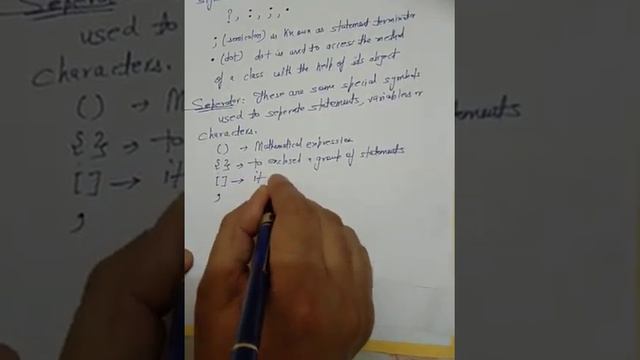 ?, :, ;, .
; (semicolon) is known as statement terminator
. (dot) dot is used to access the method
of a class with the help of its object
Seperator: These are some special symbols
used to seperate statements, variables or
characters.
() → Mathematical expression
{} → to enclosed a group of statements
[] → it
;